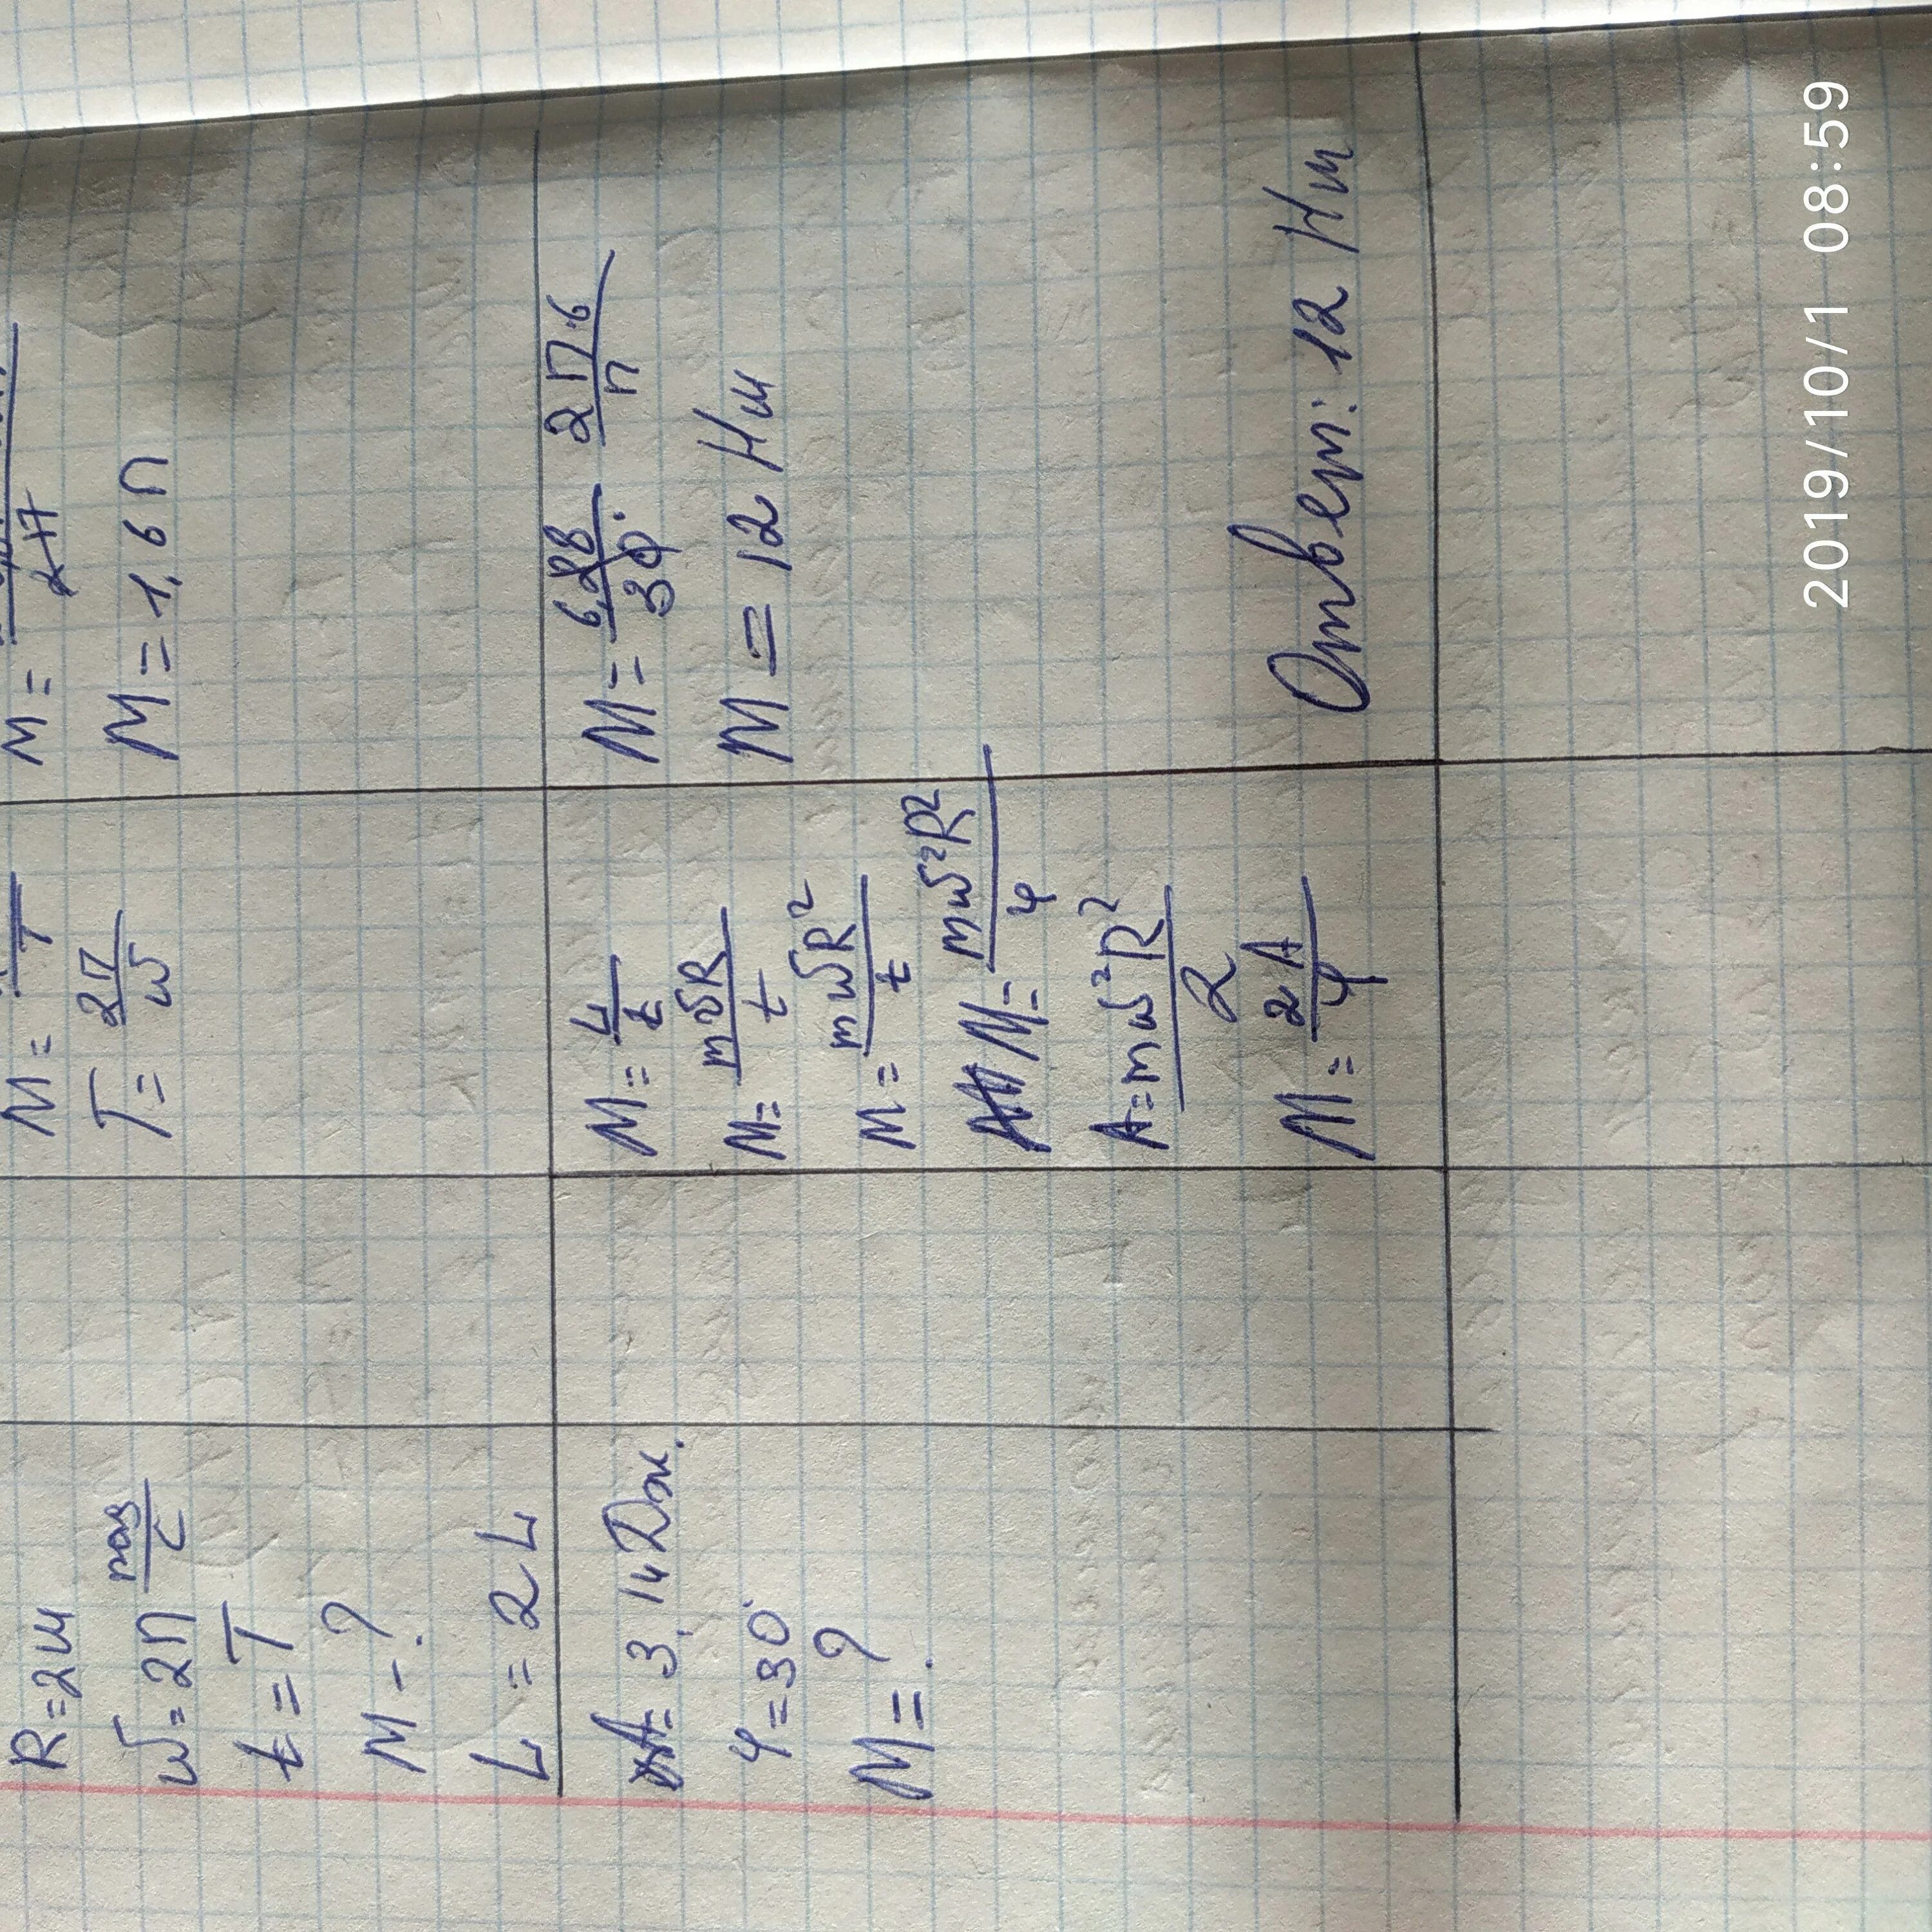 R=2м
ω=2π рад/с
t=T
M-?
L=2L
T=2π/ω
M=1,6π
A=3,14Дж.
φ=30°
M=?
M=L/t
M=mυR/t
M=mωR²/t
M=mω²R²/φ
A=mω²R²/2
M=2A/φ
M=6,28/30° 2π·6/π
M=12 Нм
Ответ: 12 Нм
2019/10/1 08:59